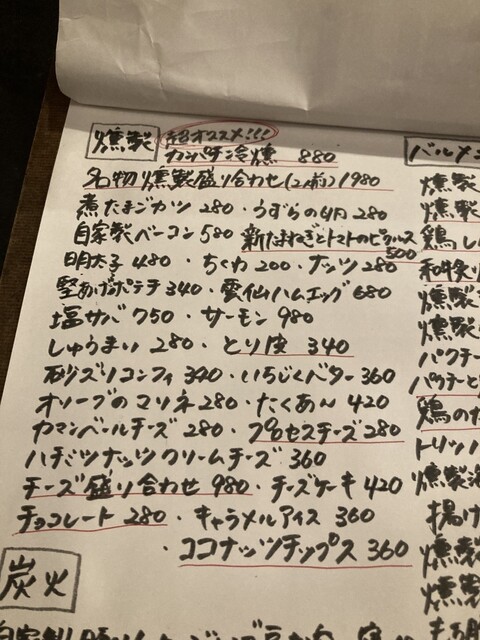 燻製 超オススメ!!!
カンパチ冷燻 880
名物燻製盛り合わせ(2人前)1980
煮たまごカツ 280・うずらの卵 280
自家製ベーコン 580 新たまねぎとトマトのピクルス
500
明太子 480・ちくわ 200・ナッツ 280
堅あげポテチ 340・雲仙ハムエッグ 680
塩サバ 750・サーモン 980
しゅうまい 280・とり皮 340
砂ズリコンフィ 340・いちじくバター 360
オリーブのマリネ 280・たくあん 420
カマンベールチーズ 280・プロセスチーズ 280
ハチミツナッツクリームチーズ 360
チーズ盛り合わせ 980・チーズケーキ 420
チョコレート 280・キャラメルアイス 360
・ココナッツチップス 360
炭火
自家製
バルメニ
燻製
燻製
鶏し
和牛
燻製
燻製
パクチー
パクチーと
鶏の
トリッパ
燻製
揚げ
燻製
燻製